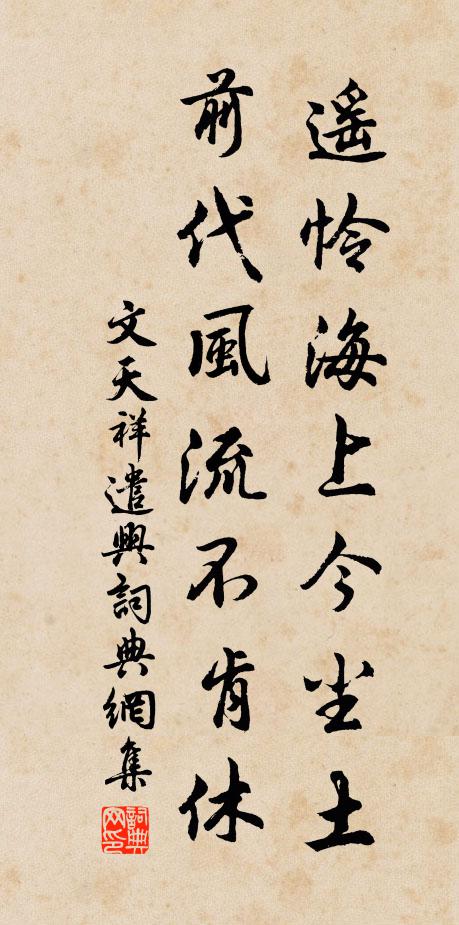 遥怜海上今尘土
前代風流不肯休
文天祥遣興詞典網集
詞典網印